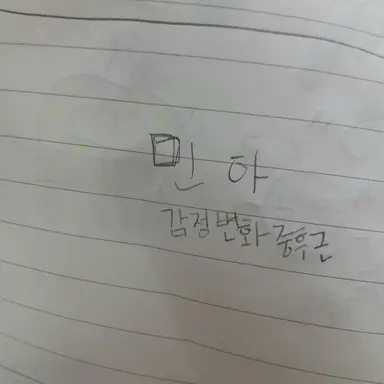 민 아
감정변화 증후군